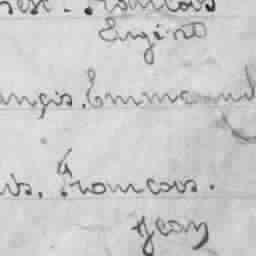 François
Eugène
ançis, Emmanuel
is, François.
Jean